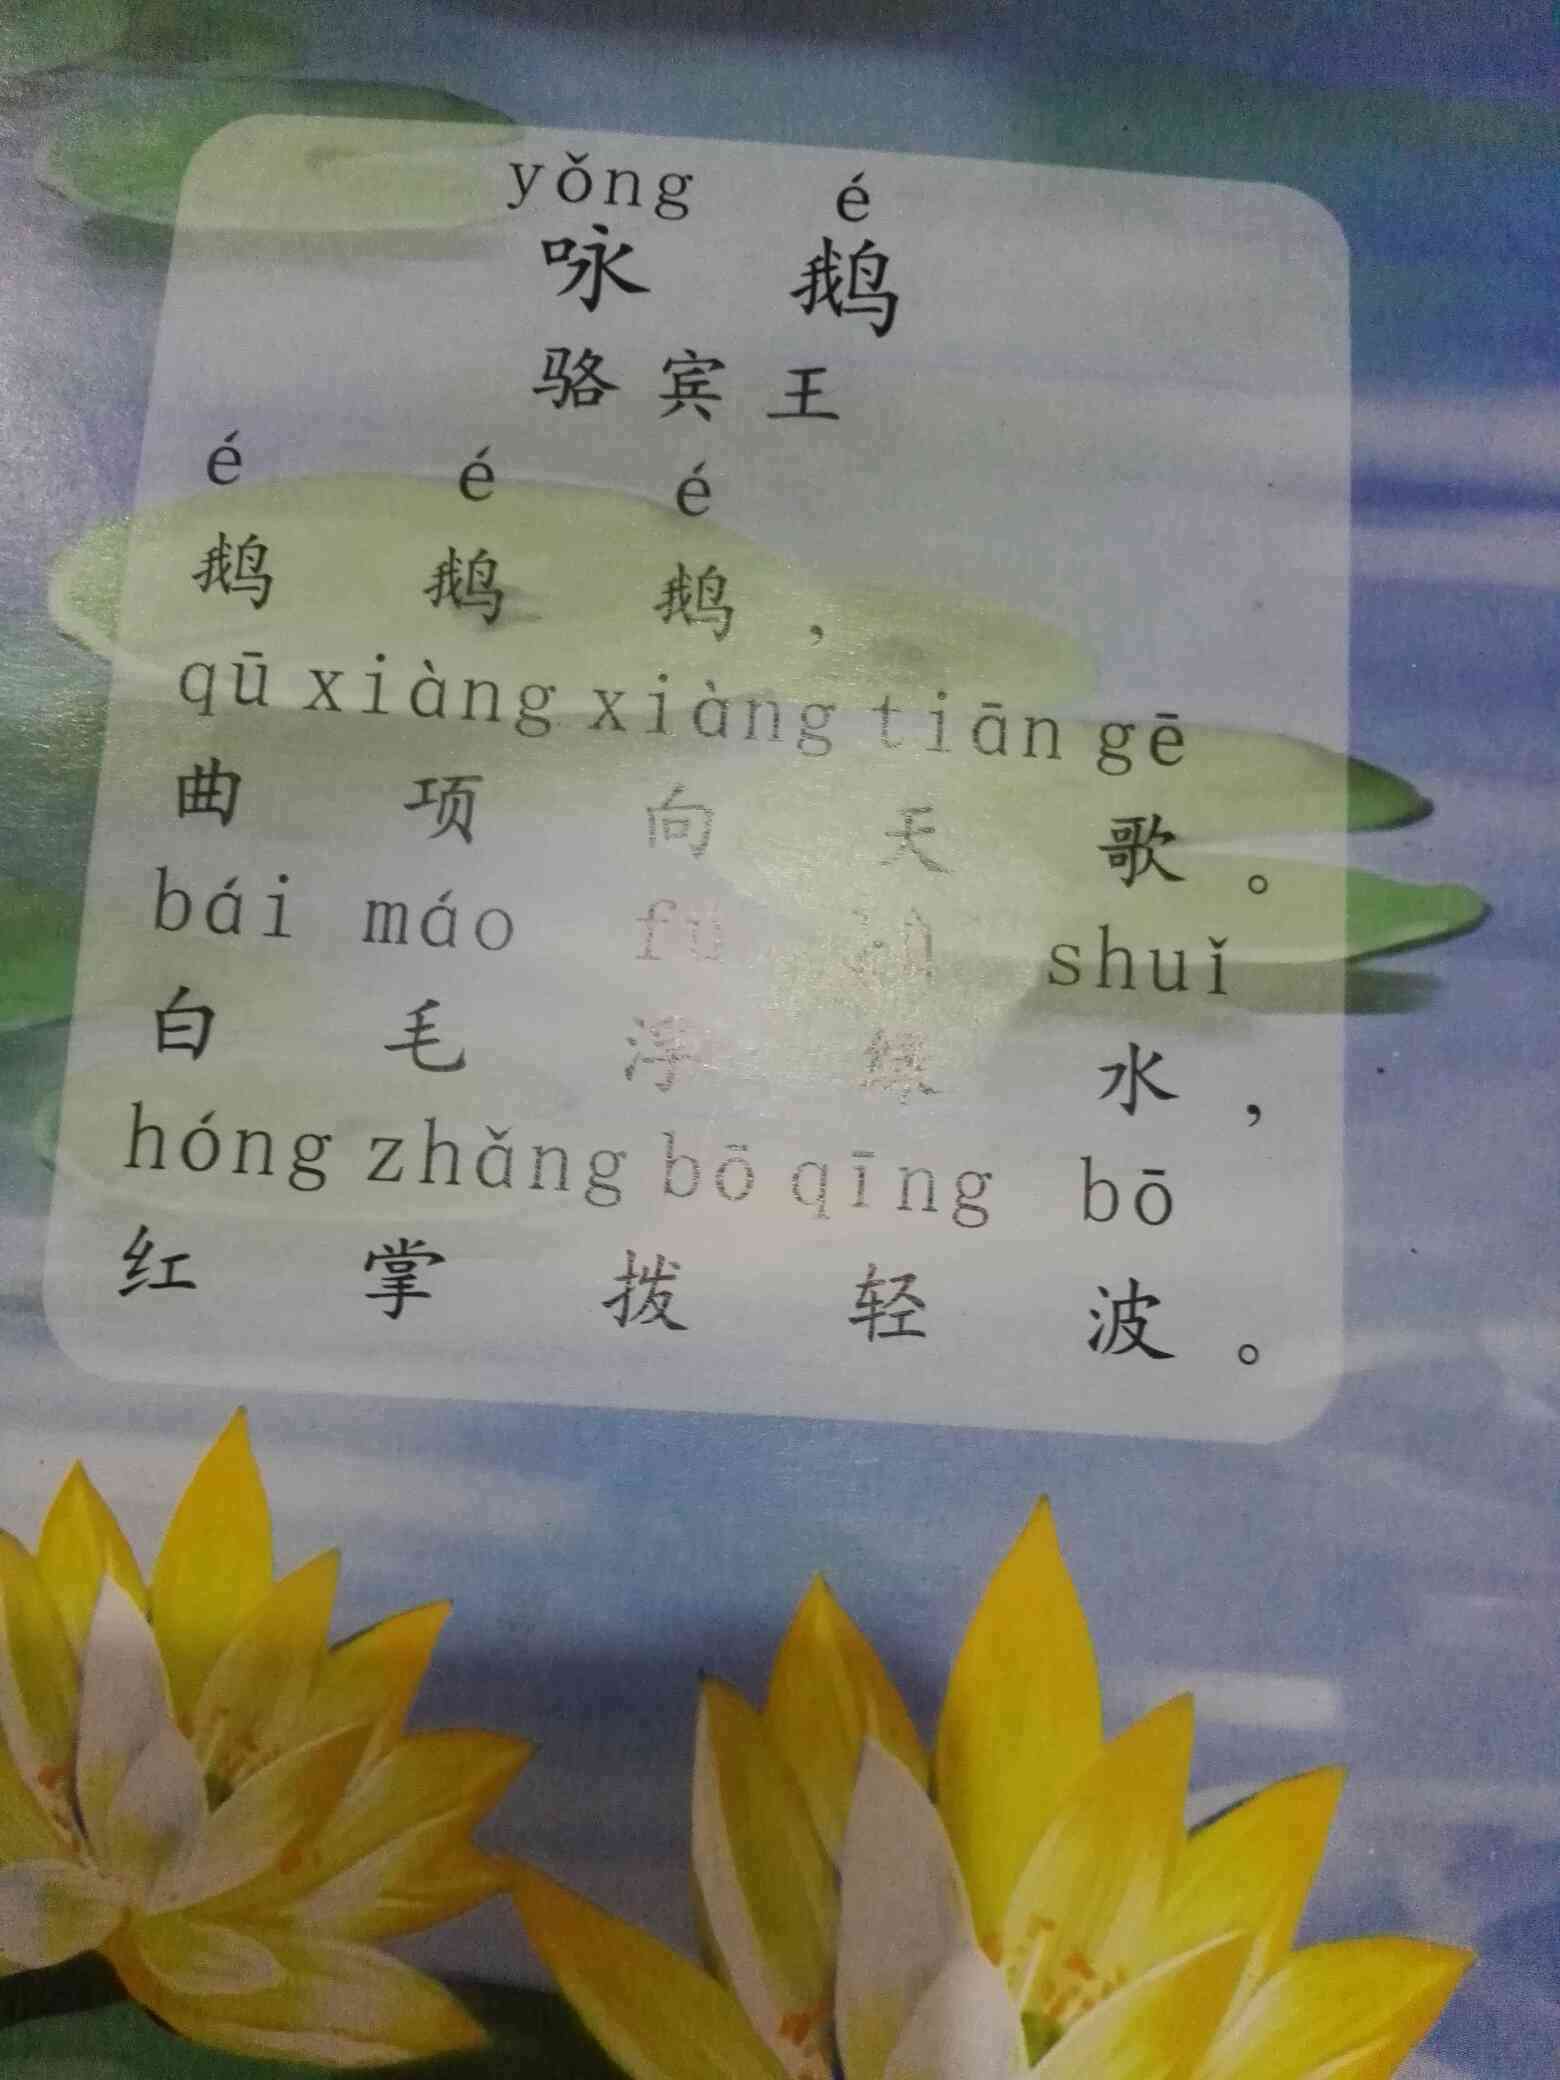 yǒng é
咏 鹅
骆 宾 王
é é é
鹅 鹅 鹅，
qū xiàng xiàng tiān gē
曲 项 向 天 歌。
bái máo shuǐ
白 毛 浮 绿 水，
hóng zhǎng bō qīng bō
红 掌 拨 轻 波。